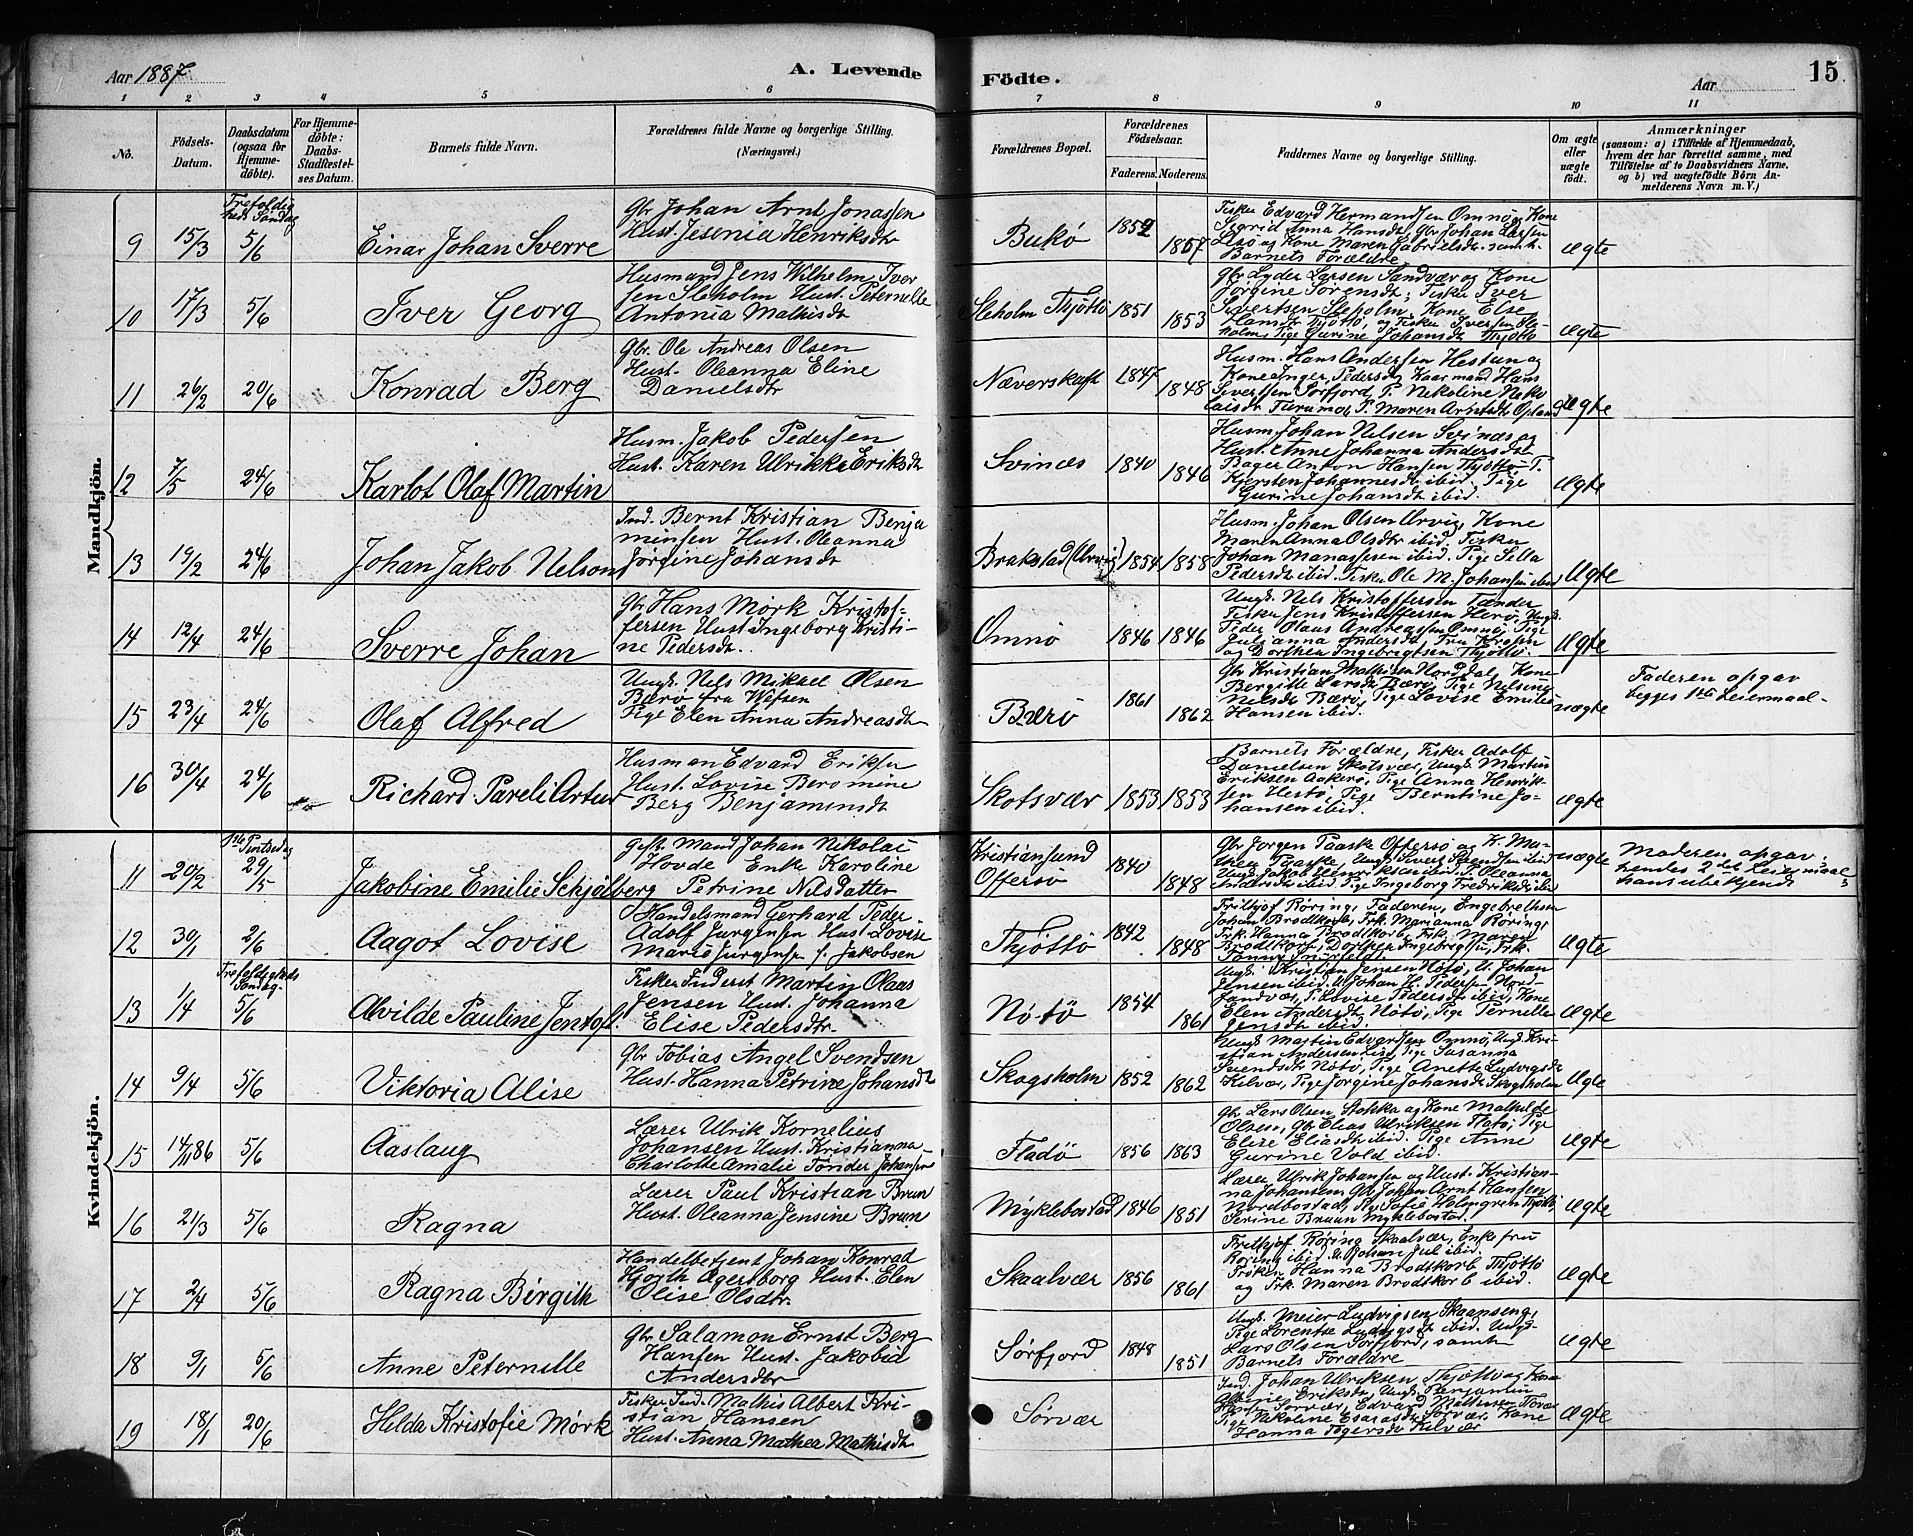 Aar 1887
A. Levende
Födte.
Aar
15
1 2 3 4 5 6 7 8 9 10 11
No.
Födsels-
Datum.
Daabsdatum
(ogsaa for
Hjemme-
döbte).
For Hjemme-
döbte:
Daabs-
Stadfestel-
ses Datum.
Barnets fulde Navn.
Forældrenes fulde Navne og borgerlige Stilling.
(Næringsvei.)
Forældrenes Bopæl.
Forældrenes
Födselsaar.
Faderens. Moderens.
Faddernes Navne og borgerlige Stilling.
Om ægte
eller
uægte
födt.
Anmærkninger
(saasom: a) i Tilfælde af Hjemmedaab,
hvem der har forrettet samme, med
Tilföielse af to Daabsvidners Navne,
og b) ved uægtefödte Börn An-
melderens Navn m. V.)
Mandkjön.
Trefoldig
heds Søndag
9 15/3 5/6 Einar Johan Sverre
Gbr Johan Arnt Jonassen
Hust. Jesenia Henriksdtr
Bukø 1852 1857
Fisker Edvard Hermandsen Omnø og Kone
Sigrid Anna Hansdtr, Gbr Johan Larsen
og Kone Maren Gabrielsdtr. samt
Barnets Forældre
Ægte
10 17/3 5/6 Iver Georg
Husmand Jens Wilhelm Iver
sen Sleholm Hust. Peternelle
Antonia Mathisdtr
Sleholm Thjøttø 1851 1853
Gbr Lyder Larsen Sandvær og Kone
Jørgine Sørensdtr, Fisker Iver
Sivertsen Sleholm, Kone Else
Hansdtr Thjøttø, og Fisker Iversen Sle-
holm, Pige Gurine Johansdtr Thjøttø
Ægte
11 26/2 20/6 Konrad Berg
Gbr. Ole Andreas Olsen
Hust. Oleanna Eline
Danielsdtr
Næverskaft 1847 1848
Husm. Hans Andersen Hestun og
Kone Inger Pedersdtr, Kaarmand Hans
Sivertsen Sørfjord, P. Nikoline Niko
laisdtr Furumo, P. Maren Arntsdtr Opland
Ægte
12 7/5 24/6 Karlot Olaf Martin
Husm. Jakob Pedersen
Hust. Karen Ulrikke Eriksdtr
Svinæs 1840 1846
Husm. Johan Nelsen Svinæs og
Hust. Anne Johanna Andersdtr
Bager Anton Hansen Thjøttø T.
Kjersten Johannesdtr ibid. Pige
Gurine Johansdtr ibid.
Ægte
13 19/2 24/6 Johan Jakob Nelson
Ind. Bernt Kristian Benja
minsen Hust. Oleanna
Jørgine Johansdtr
Brakstad (Urvig) 1854 1858
Husm. Johan Olsen Urvig, Kone
Maren Anna Olsdtr ibid. Fisker
Johan Manassesen ibid. Pige Sella
Pedersdtr ibid. Fisker Ole M. Johansen ibid
Ægte
14 12/4 24/6 Sverre Johan
Gbr Hans Mørk Kristof-
fersen Hust. Ingeborg Kristi-
ne Pedersdtr.
Omnø 1846 1846
Ungk. Nels Kristoffersen Tænder
Fisker Jens Kristoffersen Herø, Ungk.
Peder Olaus Andreassen Omnø, Pige
Julianna Andersdtr, Fru
og Dorthea Ingebrigtsen Thjøttø.
Ægte
15 23/4 24/6 Olaf Alfred
Ungk. Nels Mikael Olsen
Bærø fra Wefsen
Pige Elen Anna Andreasdtr
Bærø 1861 1862
Gbr Kristian Mathisen Norddal, Kone
Bergitte Larsdtr Bærø, Pige Nelsine
Nelsdtr Bærø, Pige Lovise Emilie
Hansen ibid.
uægte
Faderen opgav
begges 1ste Leiermaal
16 30/4 24/6 Richard Pareli Artur
Husman Edvard Eriksen
Hust. Lovise Beromine
Berg Benjaminsdtr
Skotsvær 1853 1853
Barnets Forældre, Fisker Adolf
Danielsen Skotsvær, Ungk. Martin
Eriksen Aakerø, Pige Anna Henrik-
sen Hestø, Pige Berntine Jo-
hansen ibid.
Ægte
Kvindekjön.
1ste Pintsedag
11 20/2 29/5 Jakobine Emilie Schjølberg
Gift Mand Johan Nikolai
Hovde Enke Karoline
Petrine Nilsdatter
Kristiansund
Offersø 1840 1848
Gbr. Jørgen Paaske Offersø og K. Ma-
thea Paaske, Ungk. Sivert Svendsen ibid
Ungk. Jakob Henriksen ibid. P. Oleanna
Andersdtr ibid. Pige Ingeborg Fredriksdtr ibid
uægte
Moderen opgav
hendes 2det Leiermaal
hans ubekjendt
12 30/1 2/6 Aagot Lovise
Handelsmand Gerhard Peder
Adolf Jurgensen Hust. Lovise
Marie Jurgensen f. Jakobsen
Thjøttø 1842 1848
Frithjof Røring, Faderen, Engebrethsen
Johan Brodtkorb, Frk. Marianna Røring,
Frk. Hanna Brodtkorb, Frk. Maren
Brodtkorb, Dorthea Ingebrigtsen, Frk.
Ægte
Trefoldigheds
Søndag
13 1/4 5/6 Alvilde Pauline Jentoft
Fisker Inderst Martin Olaus
Jensen Hust. Johanna
Elise Pedersdtr.
Nøtø 1854 1861
Ungk. Kristian Jensen Nøtø, U. Johan
Jensen ibid. U. Johan H. Pedersen Nord-
sandvær, P. Lovise Pedersdtr ibid, Kone
Elen Andersdtr Nøtø, Pige Pernille
Jensdtr ibid.
Ægte
14 9/4 5/6 Viktoria Alise
Gbr Tobias Angel Svendsen
Hust. Hanna Petrine Johansdtr
Skogsholm 1852 1862
Ungk. Martin Edvardsen Omnø, Ungk. Kri-
stian Andersen Pige Susanna
Svendsdtr Nøtø, Pige Anette Ludvigsdtr
Kilvær, Pige Jørgine Johansdtr Skogsholm
Ægte
15 14/11 86 5/6 Aaslaug
Lærer Ulrik Kornelius
Johansen Hust. Kristianna
Charlotte Amalie Tønder Johansen
Fladø 1856 1863
Gbr Lars Olsen Stokka og Kone Mathilde
Olsen, Gbr Elias Ulriksen Fladø, Pige
Elise Eliasdtr ibid. Pige Anne
Gurine Vold ibid.
Ægte
16 21/3 5/6 Ragna
Lærer Paul Kristian Bruun
Hust. Oleanna Jensine Bruun
Myklebostad 1846 1851
Lærer Ulrik Johansen og Hust. Kristian-
na Johansen, Gbr Johan Arnt Hansen
Nordbostad, Sofie Holmgren Thjøttø
Serine Bruun Myklebostad.
Ægte
17 2/4 5/6 Ragna Birgith
Handelbetjent Johan Konrad
Hjorth Agersborg Hust. Elen
Olise Olsdtr.
Skaalvær 1856 1861
Frithjof Røring Skaalvær, Enkefru
Røring ibid. U. Johan Jul ibid.
Frøken Hanna Brodtkorb Thjøttø
og Frk. Maren Brodtkorb ibid.
Ægte
18 9/1 5/6 Anne Peternille
Gbr Salamon Ernst Berg
Hansen Hust. Jakobia
Andersdtr
Sørfjord 1848 1851
Ungk. Meier Ludvigsen Skaanseng,
Pige Lorentse Ludvigsdtr ibid. Ungk.
Lars Olsen Sørfjord, samt
Barnets Forældre
Ægte
19 18/1 20/6 Helda Kristofie Mørk
Fisker Ind. Mathis Albert Kri-
stian Hansen
Hust. Anna Mathea Mathisdtr
Sørvær
Ind. Johan Ulriksen Thjøttø og Kone
Eriksdtr, Ungk. Benjamin
Hansen Sørvær, Edvard Mathisen
Pige Nikoline Esaiasdtr Sørvær, Kone
Hanna Kilvær
Ægte